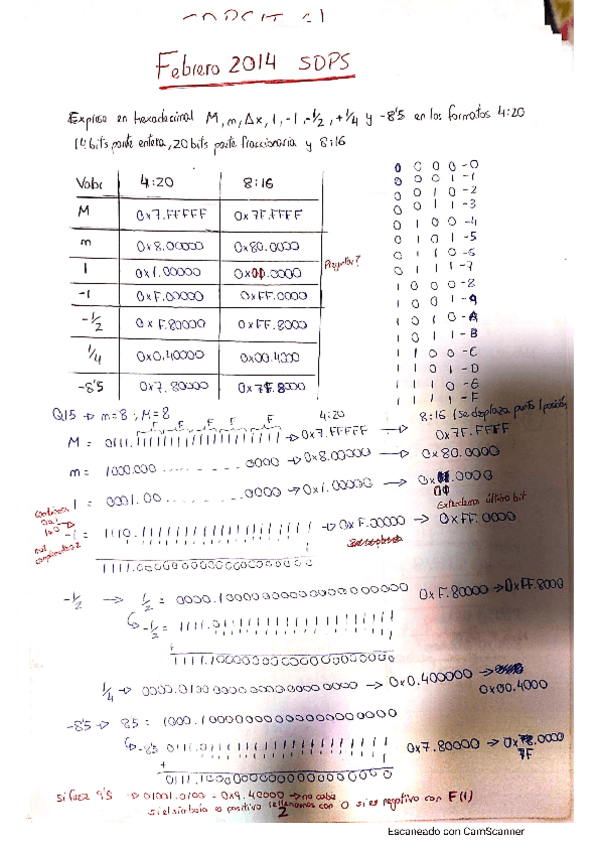 Febrero 2014 SDPS
Exprese en hexadecimal M, m, Δx, 1, -1, -1/2, +1/4 y -8'5 en los formatos 4:20
(4 bits parte entera, 20 bits parte fraccionaria y 8:16
Valor 4:20 8:16
M 0x7.FFFFF 0x7F.FFFF
m 0x8.00000 0x80.0000
1 0x1.00000 0x01.0000
-1 0xF.00000 0xFF.0000
-1/2 0xF.80000 0xFF.8000
1/4 0x0.40000 0x00.4000
-8'5 0x7.80000 0x7F.8000
Preguntar?
0 0 0 0 - 0
0 0 0 1 - 1
0 0 1 0 - 2
0 0 1 1 - 3
0 1 0 0 - 4
0 1 0 1 - 5
0 1 1 0 - 6
0 1 1 1 - 7
1 0 0 0 - 8
1 0 0 1 - 9
1 0 1 0 - A
1 0 1 1 - B
1 1 0 0 - C
1 1 0 1 - D
1 1 1 0 - E
1 1 1 1 - F
Q15 → m=8 ; M=8 4:20 8:16 (se desplaza punto 1 posición
F F F F F
M = 0111.11111111111111111111 → 0x7.FFFFF → 0x7F.FFFF
m = 1000.000 ......... 0000 → 0x8.00000 → 0x80.0000
1 = 0001.00 ......... 0000 → 0x1.00000 → 0x01.0000
Extendemos último bit
-1 = 1110.11111111111111111111 → 0xF.00000 → 0xFF.0000
1111.00000000000000000000
-1/2 → 1/2 = 0000.10000000000000000000 0xF.80000 → 0xFF.8000
↳ -1/2 = 1111.01111111111111111111
+
1111.10000000000000000000
1/4 → 0000.01000000000000000000 → 0x0.400000 → 0x00.4000
-8'5 → 8'5 = 1000.10000000000000000000
↳ -8'5 0111.01111111111111111111 0x7.80000 → 0x78.0000
7F
+
0111.10000000000000000000
si fuera 9'5 → 01001.0100 - 0x9.40000 → no cabe
si el símbolo es positivo rellenamos con 0 si es negativo con F(1)
2
Escaneado con CamScanner